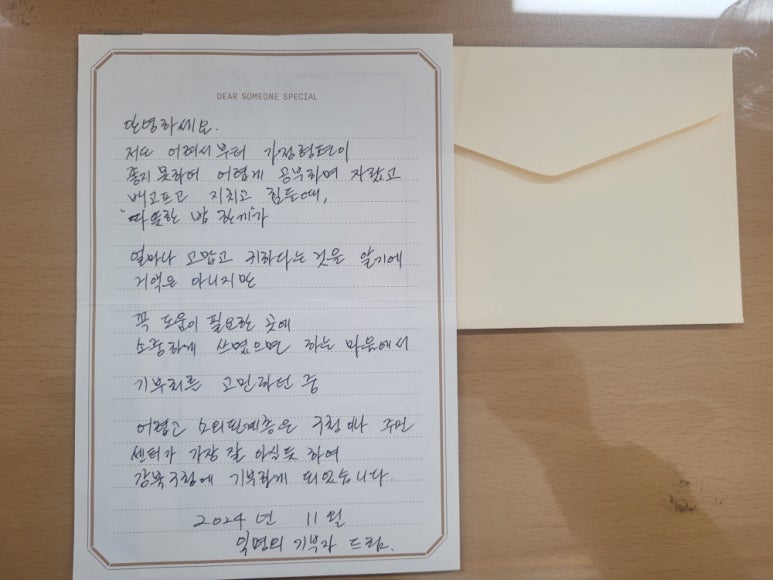 DEAR SOMEONE SPECIAL
안녕하세요.
저는 어려서부터 가정형편이
좋지 못하여 어렵게 공부하며 자랐고
배고프고 지치고 힘들때,
"따뜻한 밥 한끼"가
얼마나 고맙고 귀하다는 것을 알기에
거액은 아니지만
꼭 도움이 필요한 곳에
소중하게 쓰였으면 하는 마음에서
기부처를 고민하던 중
어렵고 소외된계층은 구청이나 주민
센터가 가장 잘 아실듯 하여
강북구청에 기부하게 되었습니다.
2024년 11월
익명의 기부자 드림.